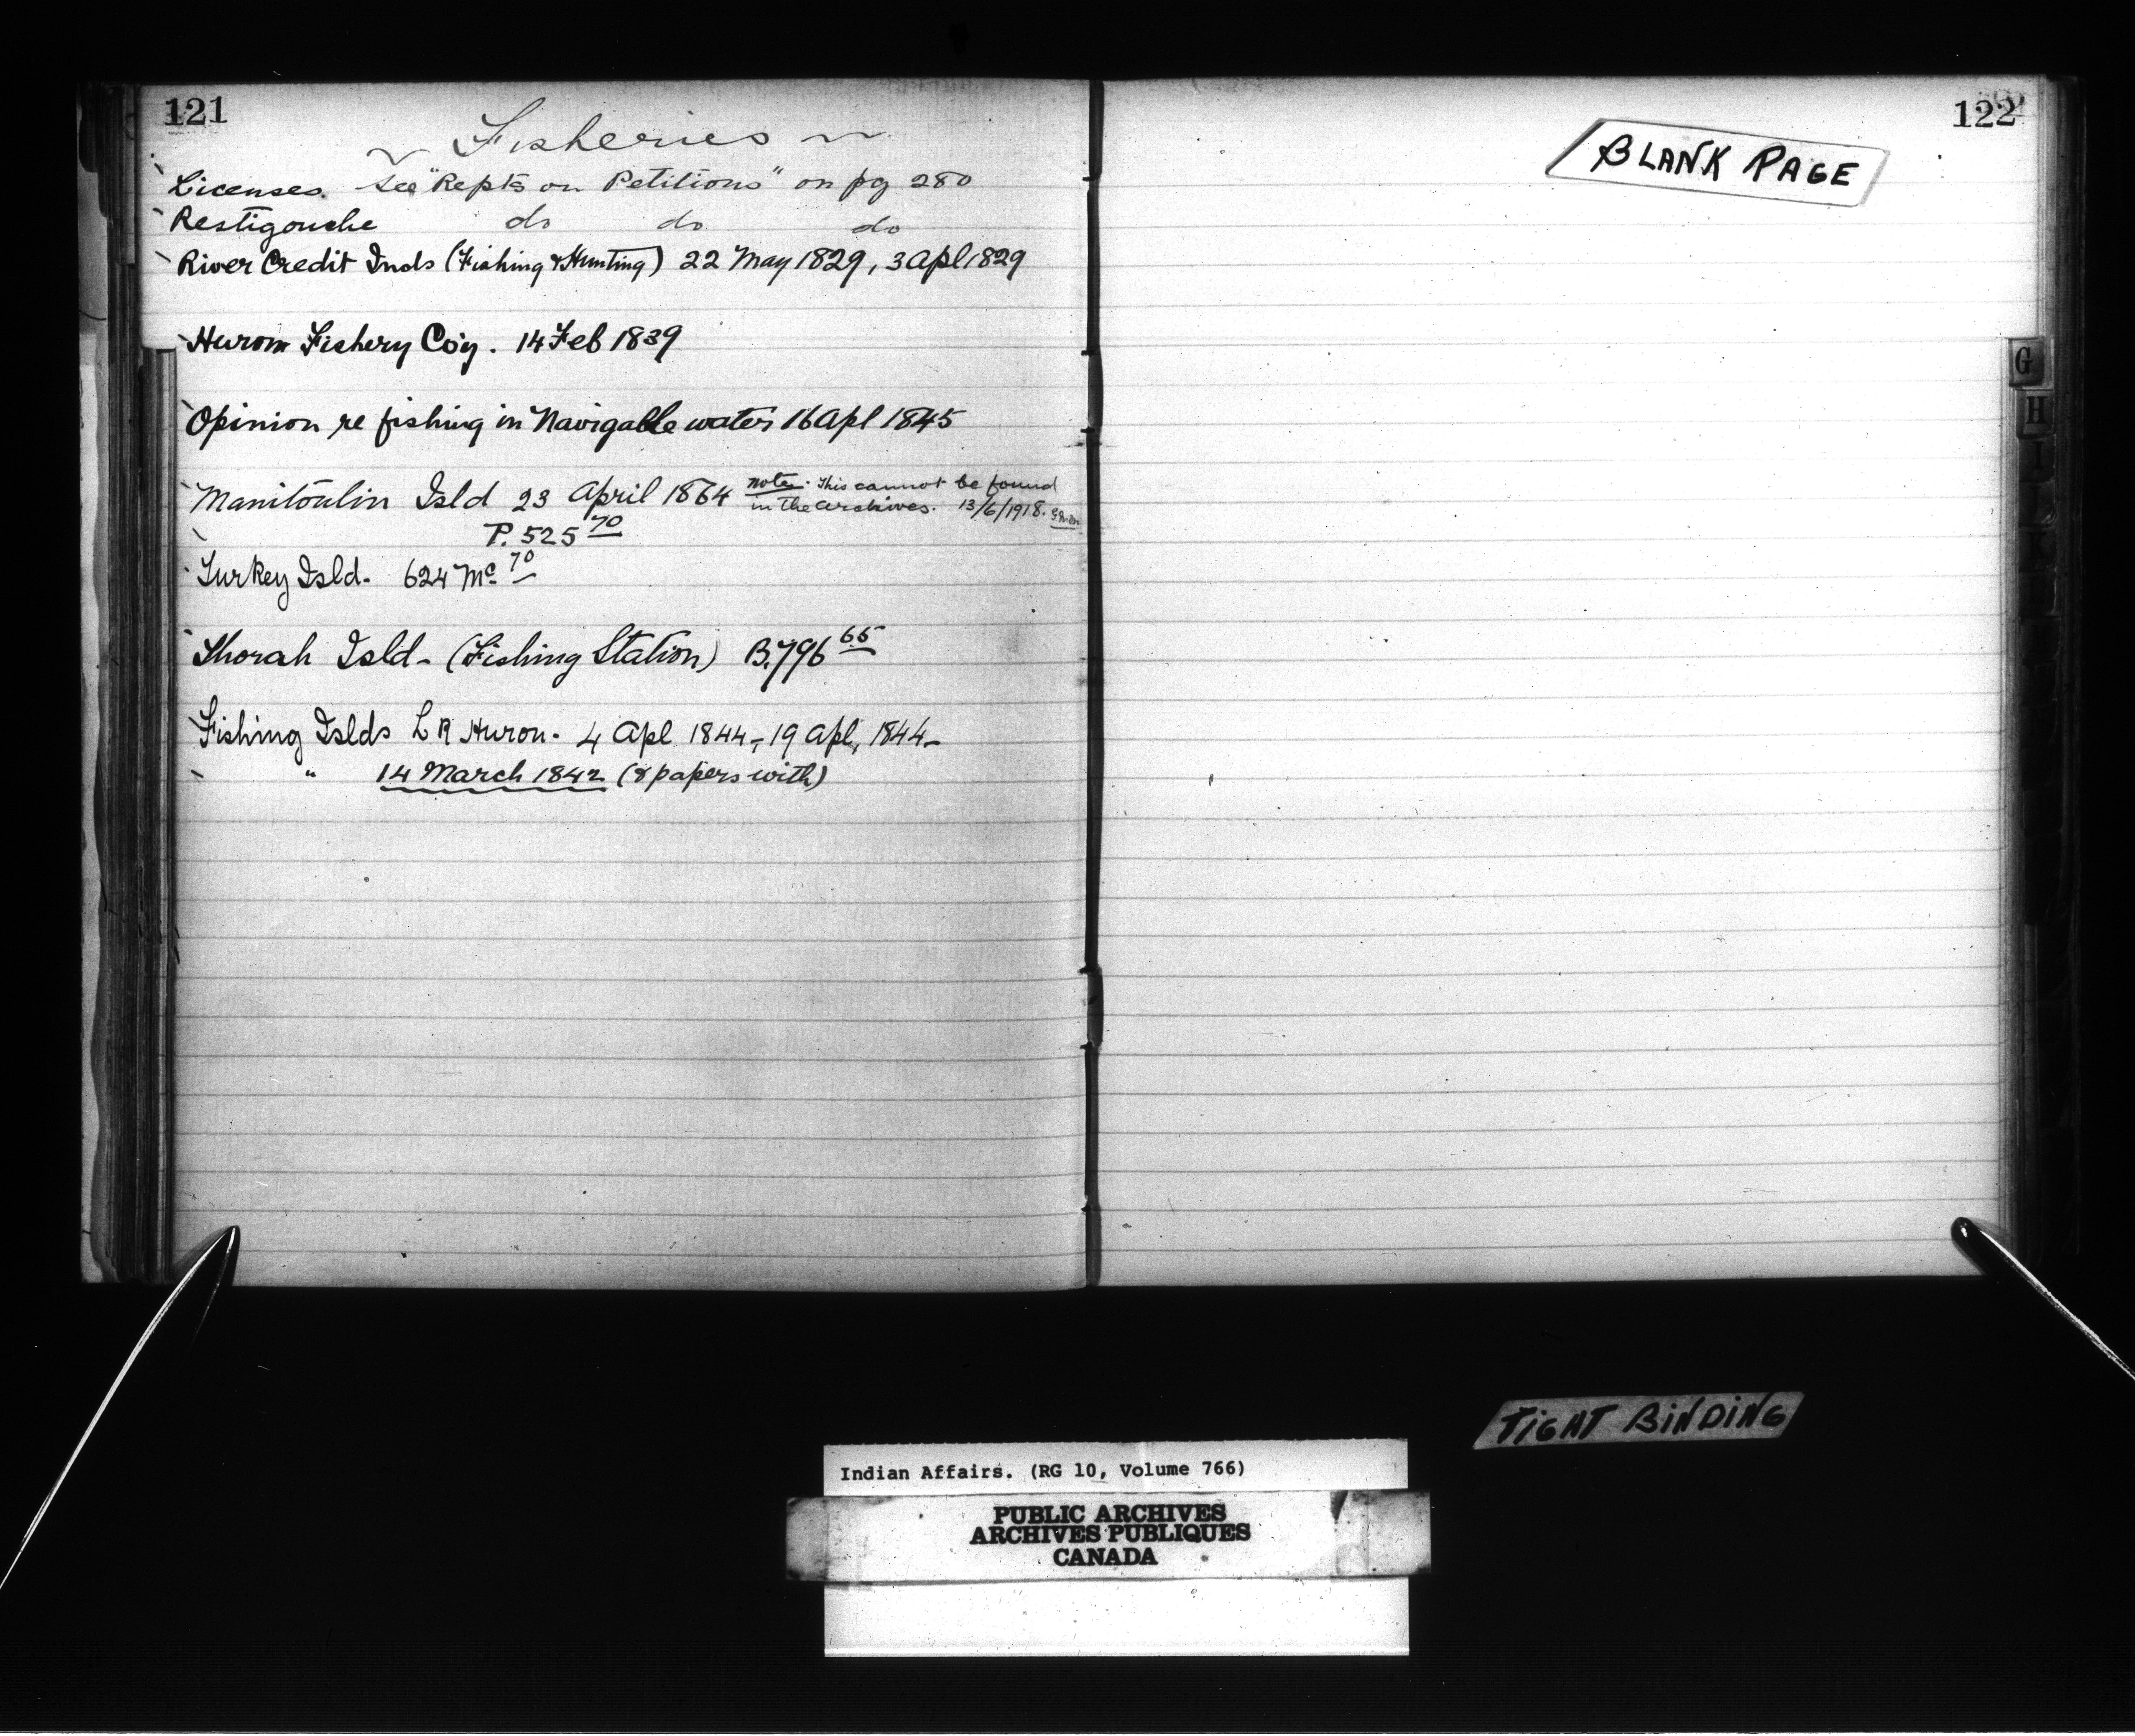 121
~ Fisheries ~
Licenses. See "Repts on Petitions" on pg 280
Restigouche do do do
River Credit Inds (Fishing & Hunting) 22 May 1829, 3 Apl 1829
Huron Fishery Co'y. 14 Feb 1839
Opinion re fishing in Navigable waters 16 Apl 1845
Manitoulin Isld 23 April 1864 Note. This cannot be found
in the archives. 13/6/1918.
P. 525 70
Turkey Isld. 624 Mc 70
Thorah Isld - (Fishing Station) B.796 65
Fishing Islds L R Huron. 4 Apl 1844, 19 Apl, 1844
" 14 March 1842 (8 papers with)
122
BLANK PAGE
G
H
I
TIGHT BINDING
Indian Affairs. (RG 10, Volume 766)
PUBLIC ARCHIVES
ARCHIVES PUBLIQUES
CANADA